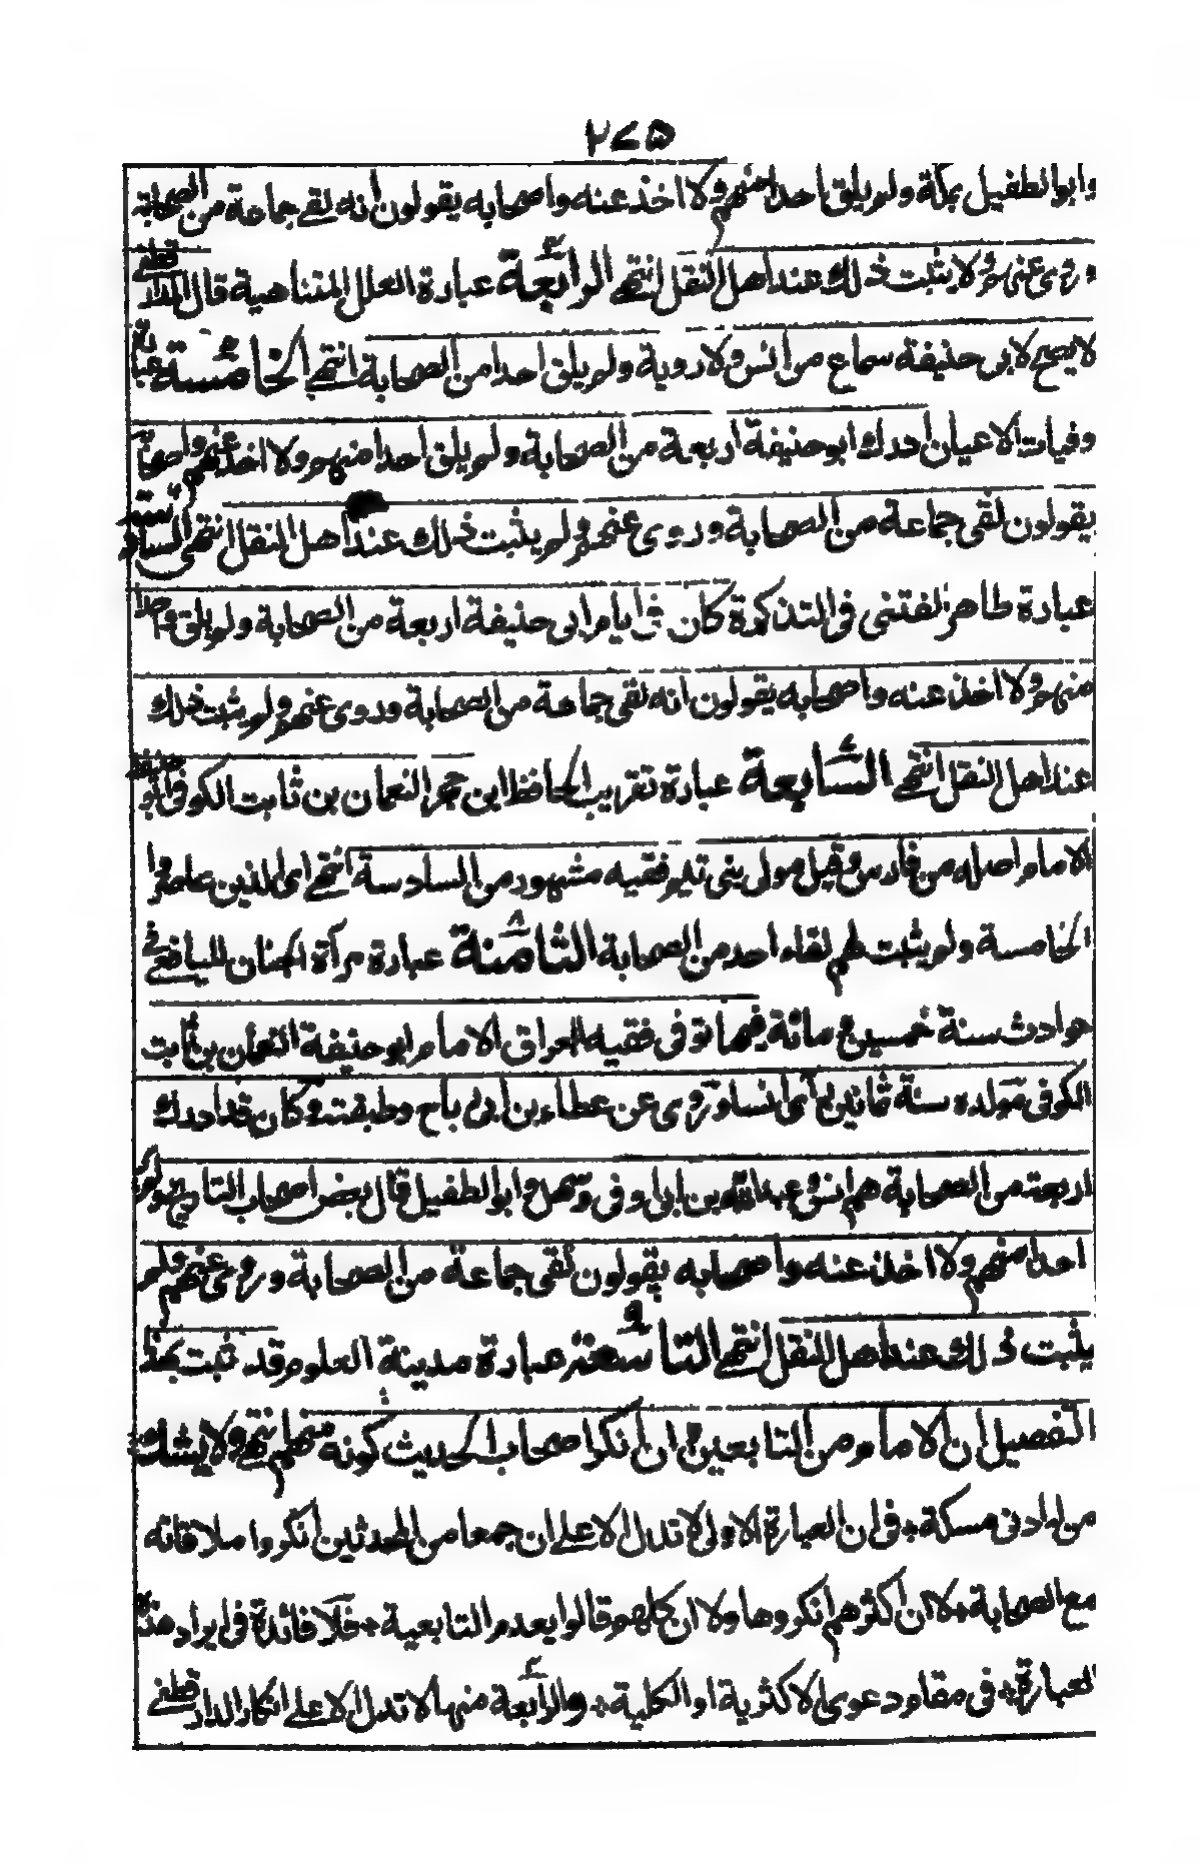 ٢٧٥
وابو الطفيل بمكة ولم يلق احدا منهم ولا اخذ عنه واصحابه يقولون انه لقى جماعة من الصحابة
وروى عنهم ولا يثبت ذلك عند اهل النقل انتهى الرابعة عبارة العلل المتناهية قال الدارقطنى
لا يصح لابى حنيفة سماع من انس ولا روية ولم يلق احدا من الصحابة انتهى الخامسة عبارة
وفيات الاعيان ادرك ابو حنيفة اربعة من الصحابة ولم يلق احدا منهم ولا اخذ عنهم واصحابه
يقولون لقى جماعة من الصحابة وروى عنهم ولم يثبت ذلك عند اهل النقل انتهى السادسة
عبارة طاهر الفتنى فى التذكرة كان فى ايام ابى حنيفة اربعة من الصحابة ولم يلق واحدا
منهم ولا اخذ عنه واصحابه يقولون انه لقى جماعة من الصحابة وروى عنهم ولم يثبت ذلك
عند اهل النقل انتهى السابعة عبارة تقريب الحافظ ابن حجر النعمان بن ثابت الكوفى ابو حنيفة
الامام اصله من فارس وقيل مولى بنى تيم فقيه مشهور من السادسة انتهى اى الذين عاصروا
الخامسة ولم يثبت لهم لقاء احد من الصحابة الثامنة عبارة مرآة الجنان لليافعى فى
حوادث سنة خمسين ومائة وفيها توفى فقيه العراق الامام ابو حنيفة النعمان بن ثابت
الكوفى مولده سنة ثمانين رأى انسا وروى عن عطاء بن ابى رباح وطبقته وكان قد ادرك
اربعة من الصحابة هم انس وعبد الله بن ابى اوفى وسهل وابو الطفيل قال بعض اصحاب التاريخ ولم يلق
احدا منهم ولا اخذ عنه واصحابه يقولون لقى جماعة من الصحابة وروى عنهم ولم
يثبت ذلك عند اهل النقل انتهى التاسعة عبارة مدينة العلوم قد ثبت بهذا
التفصيل ان الامام من التابعين وان انكر اصحاب الحديث كونه منهم انتهى ولا يشك
من له ادنى مسكة فى ان العبارة الاولى لا تدل الا على ان جمعا من المحدثين انكروا ملاقاته
مع الصحابة لا ان اكثرهم انكروها ولا ان كلهم قالوا بعدم التابعية فلا فائدة فى ايراد هذه
العبارة فى مقام دعوى الاكثرية او الكلية والرابعة منها لا تدل الا على انكار الدارقطنى